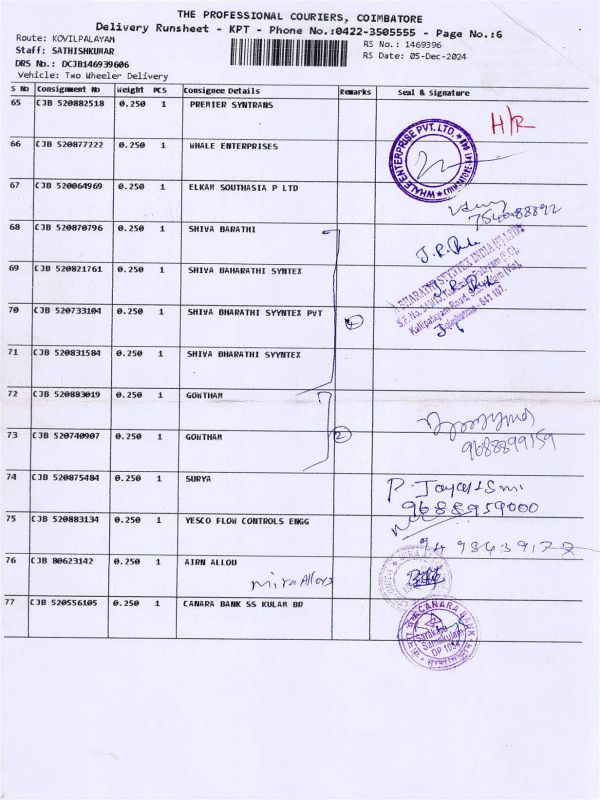 THE PROFESSIONAL COURIERS, COIMBATORE
Delivery Runsheet - KPT - Phone No.:0422-3505555 - Page No.:6
Route: KOVILPALAYAM
RS No.: 1469396
Staff: SATHISHKUMAR
RS Date: 05-Dec-2024
DRS No.: DCJB146939606
Vehicle: Two Wheeler Delivery
S No Consignment No Weight PCS Consignee Details Remarks Seal & signature
65 CJB 520882518 0.250 1 PREMIER SYNTRANS
H/R
66 CJB 520877222 0.250 1 WHALE ENTERPRISES
WHALE ENTERPRISE PVT. LTD.
67 CJB 520064969 0.250 1 ELKAM SOUTHASIA P LTD
68 CJB 520870796 0.250 1 SHIVA BARATHI
69 CJB 520821761 0.250 1 SHIVA BAHARATHI SYNTEX
70 CJB 520733104 0.250 1 SHIVA BHARATHI SYYNTEX PVT
71 CJB 520831584 0.250 1 SHIVA BHARATHI SYYNTEX
72 CJB 520883019 0.250 1 GOWTHAM
73 CJB 520740907 0.250 1 GOWTHAM
2
9688899159
74 CJB 520875484 0.250 1 SURYA
9688959000
75 CJB 520883134 0.250 1 YESCO FLOW CONTROLS ENGG
76 CJB 80623142 0.250 1 AIRN ALLOU
77 CJB 520556105 0.250 1 CANARA BANK SS KULAM BR
CANARA BANK